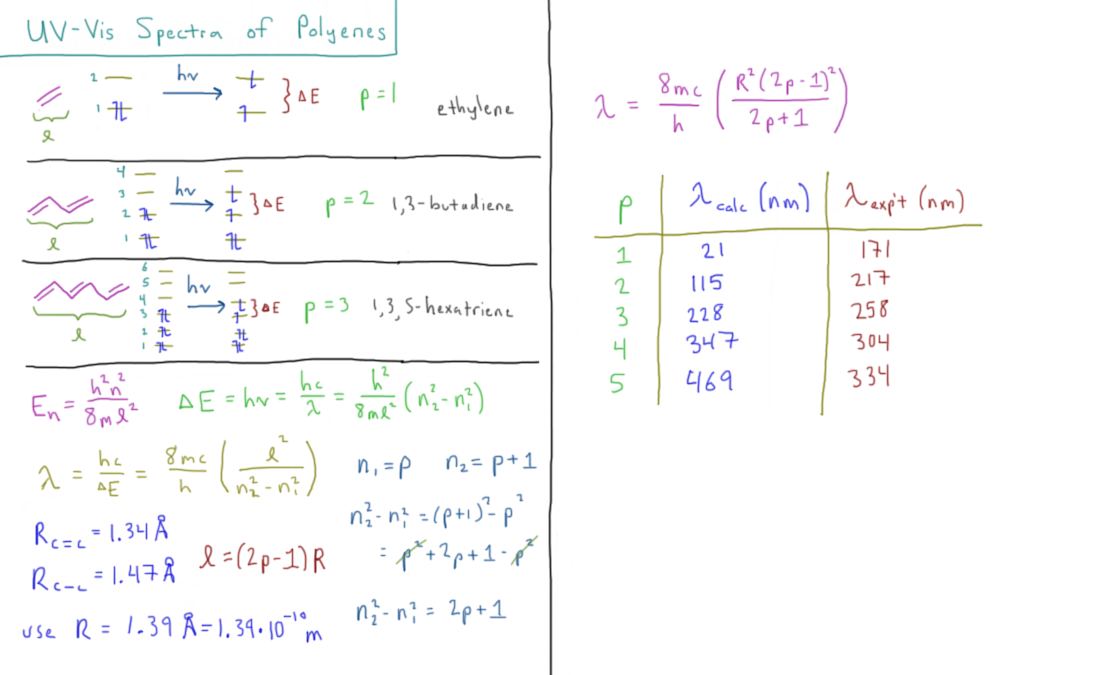 UV-Vis Spectra of Polyenes
2
1
hν
ΔE
p=1
ethylene
ℓ
4
3
2
1
hν
ΔE
p=2
1,3-butadiene
ℓ
6
5
4
3
2
1
hν
ΔE
p=3
1,3,5-hexatriene
ℓ
Eₙ = h²n²/8mℓ²
ΔE = hν = hc/λ = h²/8mℓ² (n₂² - n₁²)
λ = hc/ΔE = 8mc/h (ℓ²/n₂² - n₁²)
n₁ = p n₂ = p+1
n₂² - n₁² = (p+1)² - p²
= p² + 2p + 1 - p²
n₂² - n₁² = 2p+1
R_C=C = 1.34 Å
R_C-C = 1.47 Å
ℓ = (2p-1)R
use R = 1.39 Å = 1.39·10⁻¹⁰ m
λ = 8mc/h (R²(2p-1)²/2p+1)
p λcalc (nm) λexp't (nm)
1 21 171
2 115 217
3 228 258
4 347 304
5 469 334